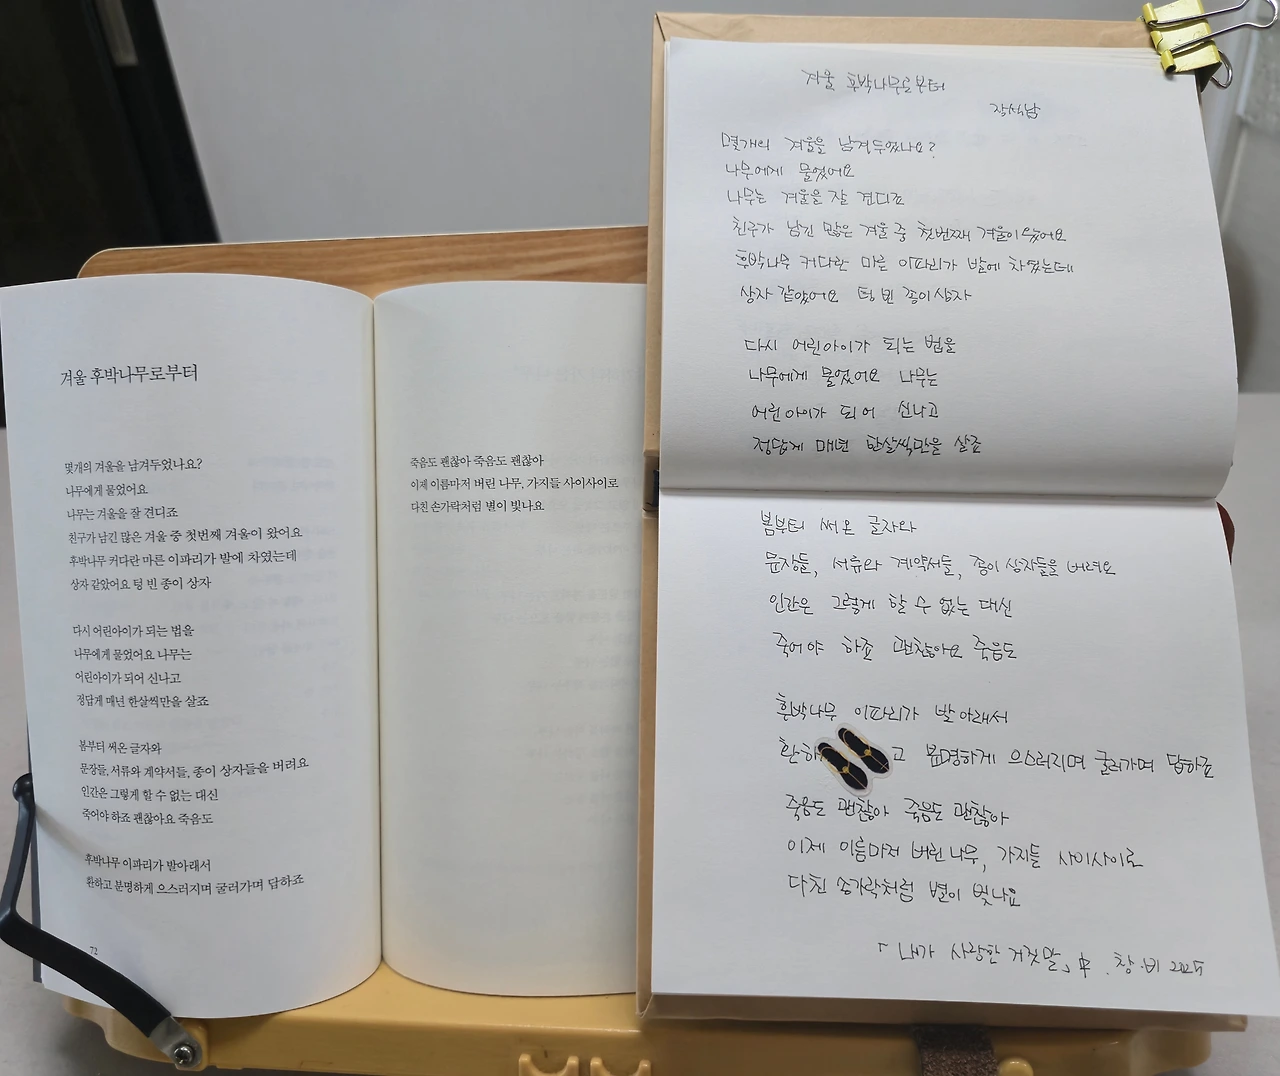 겨울 후박나무로부터
몇개의 겨울을 남겨두었나요?
나무에게 물었어요
나무는 겨울을 잘 견디죠
친구가 남긴 많은 겨울 중 첫번째 겨울이 왔어요
후박나무 커다란 마른 이파리가 발에 차였는데
상자 같았어요 텅 빈 종이 상자
다시 어린아이가 되는 법을
나무에게 물었어요 나무는
어린아이가 되어 신나고
정답게 매년 한살씩만을 살죠
봄부터 써온 글자와
문장들, 서류와 계약서들, 종이 상자들을 버려요
인간은 그렇게 할 수 없는 대신
죽어야 하죠 괜찮아요 죽음도
후박나무 이파리가 발아래서
환하고 분명하게 으스러지며 굴러가며 답하죠
72
죽음도 괜찮아 죽음도 괜찮아
이제 이름마저 버린 나무, 가지들 사이사이로
다친 손가락처럼 별이 빛나요
겨울 후박나무로부터
장석남
몇개의 겨울을 남겨두었나요?
나무에게 물었어요
나무는 겨울을 잘 견디죠
친구가 남긴 많은 겨울 중 첫번째 겨울이 왔어요
후박나무 커다란 마른 이파리가 발에 차였는데
상자 같았어요 텅 빈 종이 상자
다시 어린아이가 되는 법을
나무에게 물었어요 나무는
어린아이가 되어 신나고
정답게 매년 한살씩만을 살죠
봄부터 써온 글자와
문장들, 서류와 계약서들, 종이 상자들을 버려요
인간은 그렇게 할 수 없는 대신
죽어야 하죠 괜찮아요 죽음도
후박나무 이파리가 발아래서
환하고 분명하게 으스러지며 굴러가며 답하죠
죽음도 괜찮아 죽음도 괜찮아
이제 이름마저 버린 나무, 가지들 사이사이로
다친 손가락처럼 별이 빛나요
「내가 사랑한 거짓말」中. 창·비 2025